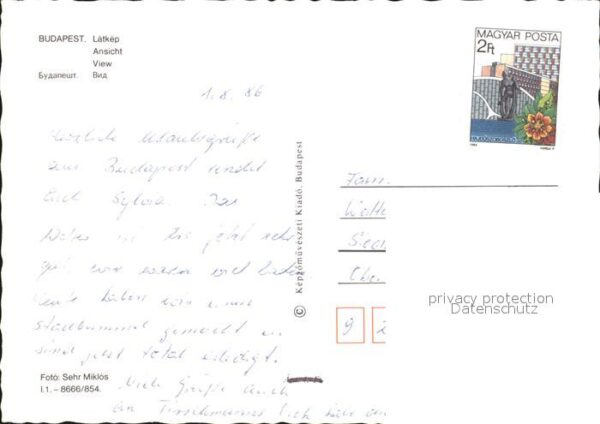 BUDAPEST. Látkép
Ansicht
View
Будапешт. Вид
MAGYAR POSTA
2Ft
1.8.86
Herzliche Urlaubsgrüße
aus Budapest sendet
Euch Sylvia. Das
ist bis jetzt sehr
gut, war
Heute haben wir einen
Stadtbummel gemacht u.
sind jetzt total erledigt.
Viele Grüße auch
an
Képzőművészeti Kiadó, Budapest
Fam.
9 2
privacy protection
Datenschutz
Fotó: Sehr Miklós
I.1. – 8666/854.